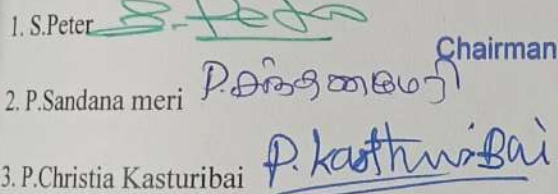 1. S.Peter S. Peter
Chairman
2. P.Sandana meri P.சந்தனமேரி
3. P.Christia Kasturibai P. kasthuriBai